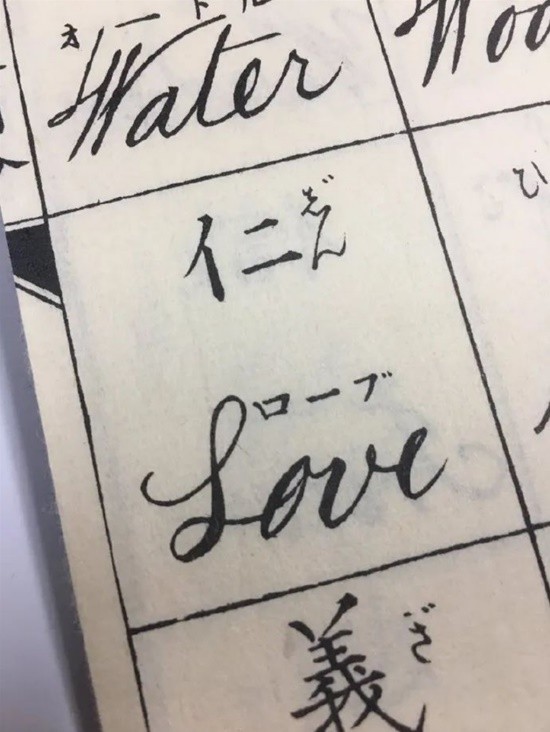 オートル
Water
Woo
仁
じん
ひ
ローブ
Love
義
ぎ